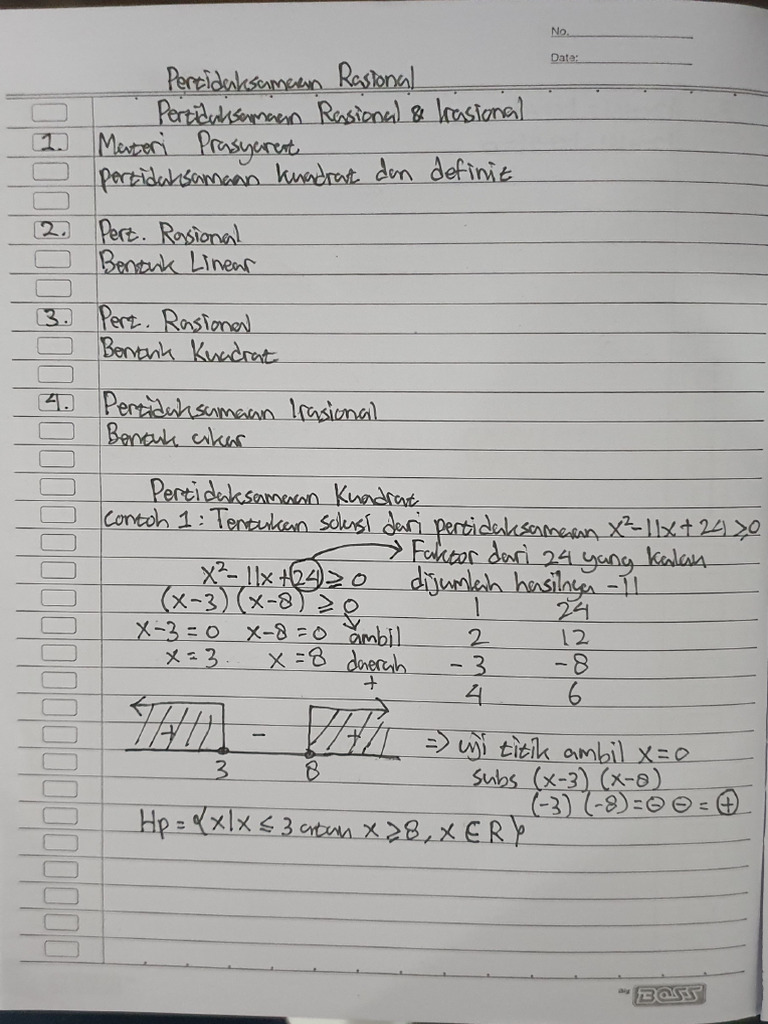 No.
Date:
Pertidaksamaan Rasional
Pertidaksamaan Rasional & Irasional
1. Materi Prasyarat
pertidaksamaan kuadrat dan definit
2. Pert. Rasional
Bentuk Linear
3. Pert. Rasional
Bentuk Kuadrat
4. Pertidaksamaan Irasional
Bentuk akar
Pertidaksamaan Kuadrat
Contoh 1 : Tentukan solusi dari pertidaksamaan x²-11x+24≥0
x²-11x+24≥0 → Faktor dari 24 yang kalau
dijumlah hasilnya -11
(x-3)(x-8)≥0 1 24
x-3=0 x-8=0 ambil 2 12
x=3. x=8 daerah -3 -8
+ 4 6
+ - + ⇒ uji titik ambil x=0
3 8 subs (x-3)(x-8)
(-3)(-8)=⊖⊖=⊕
Hp={x|x≤3 atau x≥8, x∈R}
BOSS